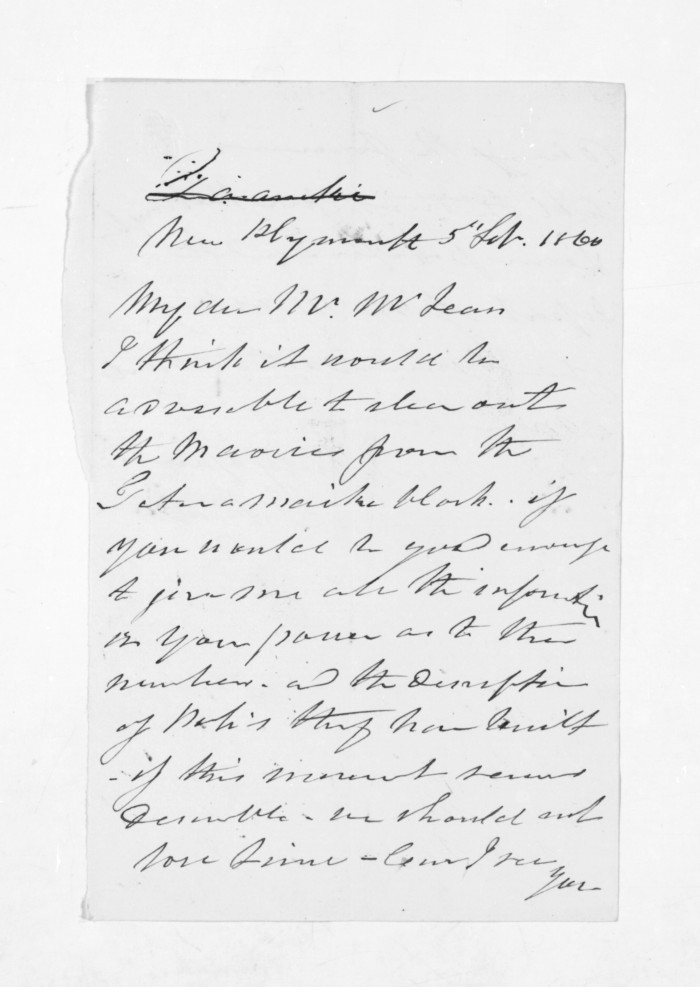 Taranaki
New Plymouth 5th Sept. 1860
My dear Mr. McLean
I think it would be
advisable to clear out
the Maories from the
Tataraimaika block. if
you would be good enough
to give me all the information
in your power as to their
numbers and the description
of Pah's they have built
- if this movement seems
desirable - we should not
lose time - Can I see
you